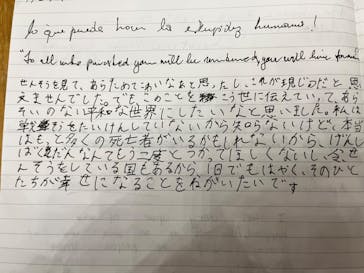 lo que puede hacer la estupidez humana!
"To all who perished you will be remembered, you will live forever
せんそうを見て、あらためてこわいなぁと思ったし、これが現じつだと思
えませんでした。でもこのことをこう世に伝えていって、あ
そいのない平和な世界にしたいなと思いました。私は
戦そうをたいけんしていないから知らないけど、本当
はもっと多くの死亡者がいるかもしれないから、げんし
ばくだんなんてもう二度とつかってほしくないし、今、せ
んそうをしている国もあるから、1日でもはやく、そのひと
たちが幸せになることをねがいたいです